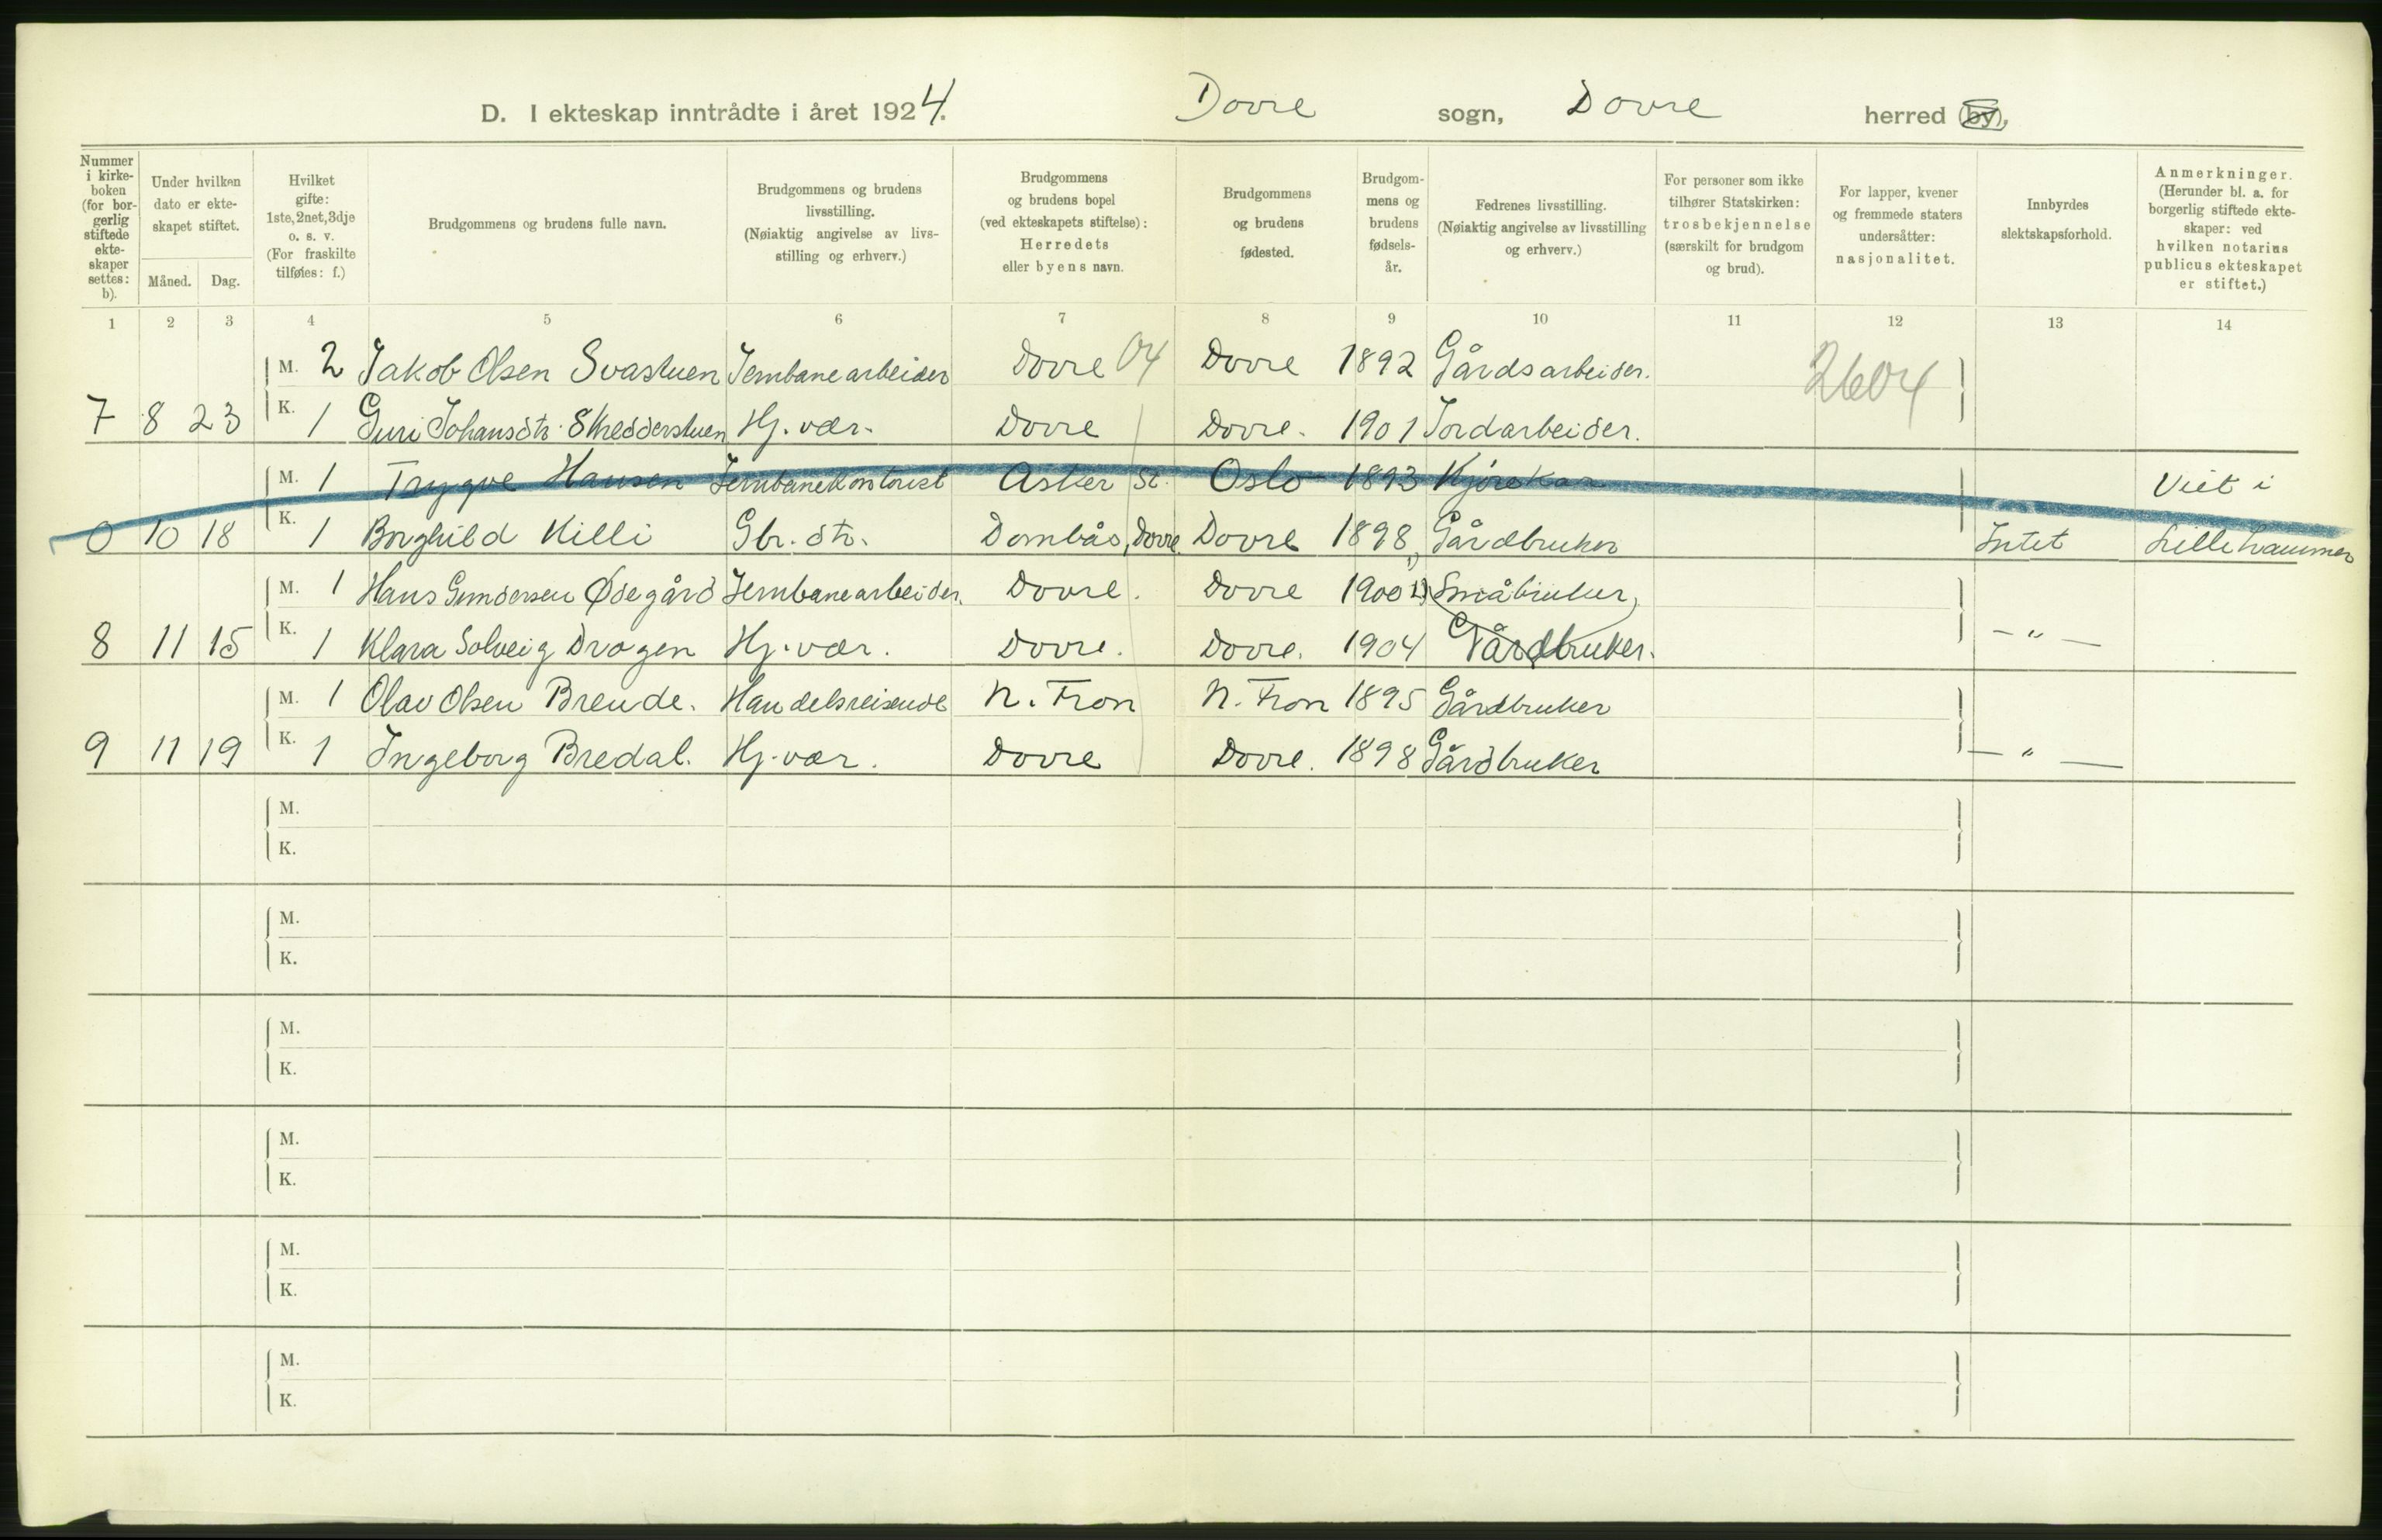 D. I ekteskap inntrådte i året 1924. Dovre sogn, Dovre herred (by).
Nummer i kirkeboken (for borgerlig stiftede ekteskaper settes: b).
Under hvilken dato er ekteskapet stiftet.
Måned. Dag.
Hvilket gifte: 1ste, 2net, 3dje o. s. v. (For fraskilte tilføies: f.)
Brudgommens og brudens fulle navn.
Brudgommens og brudens livsstilling. (Nøiaktig angivelse av livsstilling og erhverv.)
Brudgommens og brudens bopel (ved ekteskapets stiftelse): Herredets eller byens navn.
Brudgommens og brudens fødested.
Brudgommens og brudens fødselsår.
Fedrenes livsstilling. (Nøiaktig angivelse av livsstilling og erhverv.)
For personer som ikke tilhører Statskirken: trosbekjennelse (særskilt for brudgom og brud).
For lapper, kvener og fremmede staters undersåtter: nasjonalitet.
Innbyrdes slektskapsforhold.
Anmerkninger. (Herunder bl. a. for borgerlig stiftede ekteskaper: ved hvilken notarius publicus ekteskapet er stiftet.)
1 2 3 4 5 6 7 8 9 10 11 12 13 14
M. 2 Jakob Olsen Svastuen Jernbanearbeider Dovre 04 Dovre 1892 Gårdsarbeider. 2604
7 8 23 K. 1 Guri Johansdtr. Skredderstuen Hj. vær. Dovre Dovre. 1901 Jordarbeider.
M. 1 Trygve Hansen Jernbanekontorist Asker St. Oslo 1893 Kjørekar Viet i
0 10 18 K. 1 Borghild Killi Gbr. dtr. Dombås, Dovre Dovre 1898 Gårdbruker Intet Lillehammer
M. 1 Hans Gundersen Ødegård Jernbanearbeider. Dovre. Dovre 1900 Småbruker
8 11 15 K. 1 Klara Solveig Drogen Hj. vær. Dovre. Dovre. 1904 Gårdbruker. — " —
M. 1 Olav Olsen Brende. Handelsreisende N. Fron N. Fron 1895 Gårdbruker
9 11 19 K. 1 Ingeborg Bredal. Hj. vær. Dovre Dovre. 1898 Gårdbruker — " —
M.
K.
M.
K.
M.
K.
M.
K.
M.
K.
M.
K.